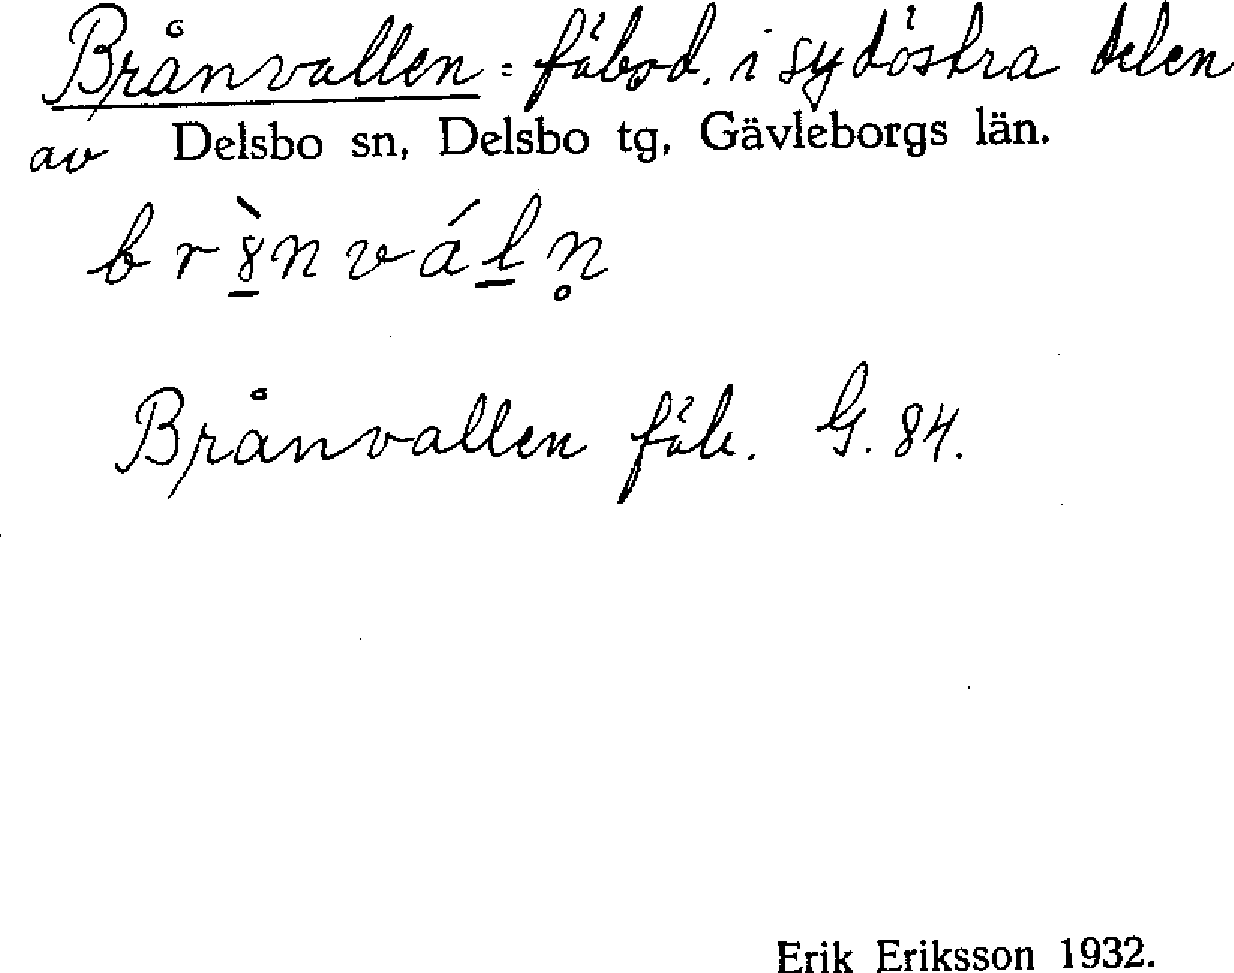 Brånvallen = fäbod. i sydöstra delen
av Delsbo sn, Delsbo tg, Gävleborgs län.
br8̲̀nvál̲n̥
Brånvallen fäb. G. 84.
Erik Eriksson 1932.